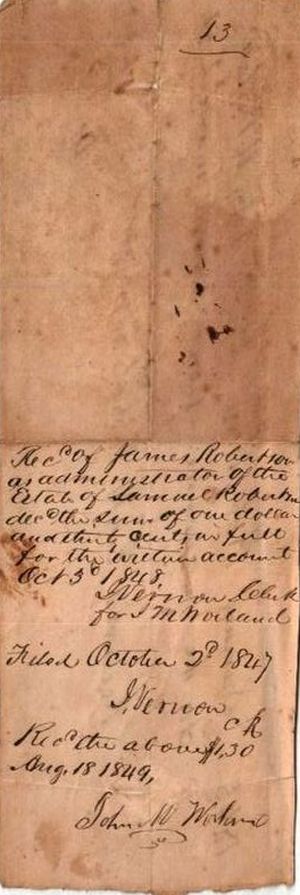 13
Rec.d of James Robertson
as administrator of the
Estate of Samuel Robertson
dec.d the sum of one dollar
and thirty cents, in full
for the within account
Oct 3d 1848,
J Vernon Clerk
for J M Worland
Filed October 2d 1847
J, Vernon
ck
Rec.d the above $1,30
Aug, 18 1849,
John M Worland